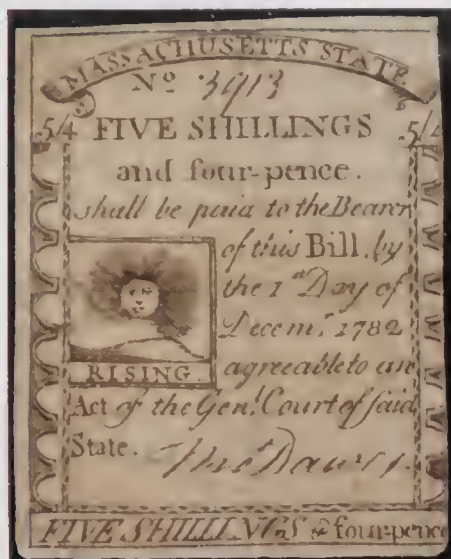 MASSACHUSETTS STATE.
No 3913
5/4 FIVE SHILLINGS 5/4
and four-pence.
shall be paid to the Bearer
of this Bill. by
the 1st Day of
Decemr. 1782
RISING.
agreeable to an
Act of the Genl. Court of said
State.
FIVE SHILLINGS & four-pence